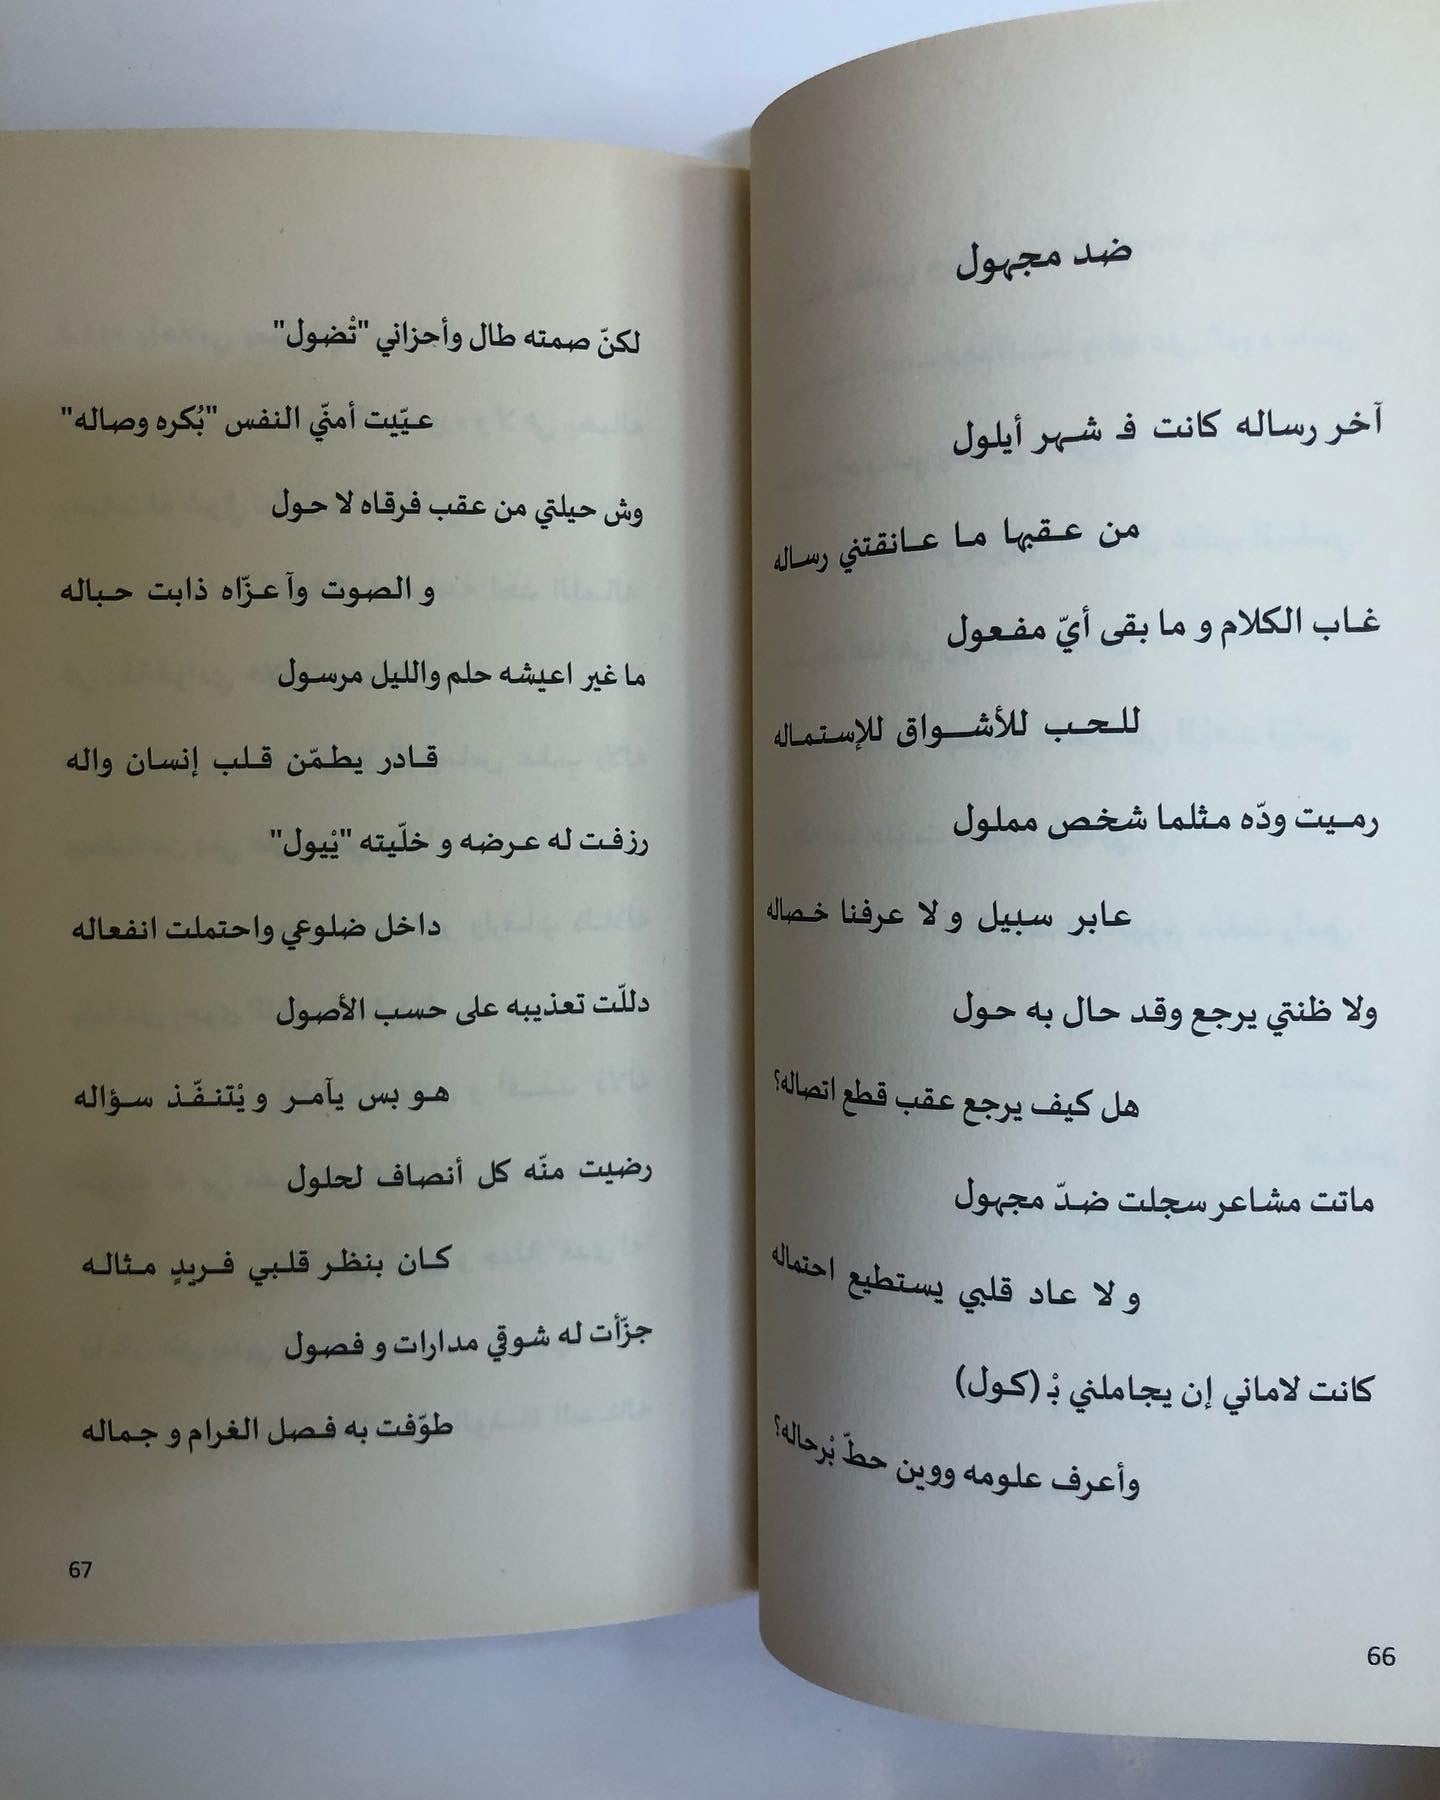 ضد مجهول
آخر رساله كانت فـ شهر أيلول
من عقبها ما عانقتني رساله
غاب الكلام و ما بقى أيّ مفعول
للحب للأشواق للإستماله
رميت ودّه مثلما شخص مملول
عابر سبيل و لا عرفنا خصاله
ولا ظنتي يرجع وقد حال به حول
هل كيف يرجع عقب قطع اتصاله؟
ماتت مشاعر سجلت ضدّ مجهول
و لا عاد قلبي يستطيع احتماله
كانت لاماني إن يجاملني بْـ (كول)
وأعرف علومه ووين حطّ بْرحاله؟
66
لكنّ صمته طال وأحزاني "تْضول"
عيّيت أمنّي النفس "بُكره وصاله"
وش حيلتي من عقب فرقاه لا حول
و الصوت وآعزّاه ذابت حباله
ما غير اعيشه حلم والليل مرسول
قادر يطمّن قلب إنسان واله
رزفت له عرضه و خلّيته "يْيول"
داخل ضلوعي واحتملت انفعاله
دللّت تعذيبه على حسب الأصول
هو بس يآمر و يْتنفّذ سؤاله
رضيت منّه كل أنصاف لحلول
كان بنظر قلبي فريدٍ مثاله
جزّأت له شوقي مدارات و فصول
طوّفت به فصل الغرام و جماله
67